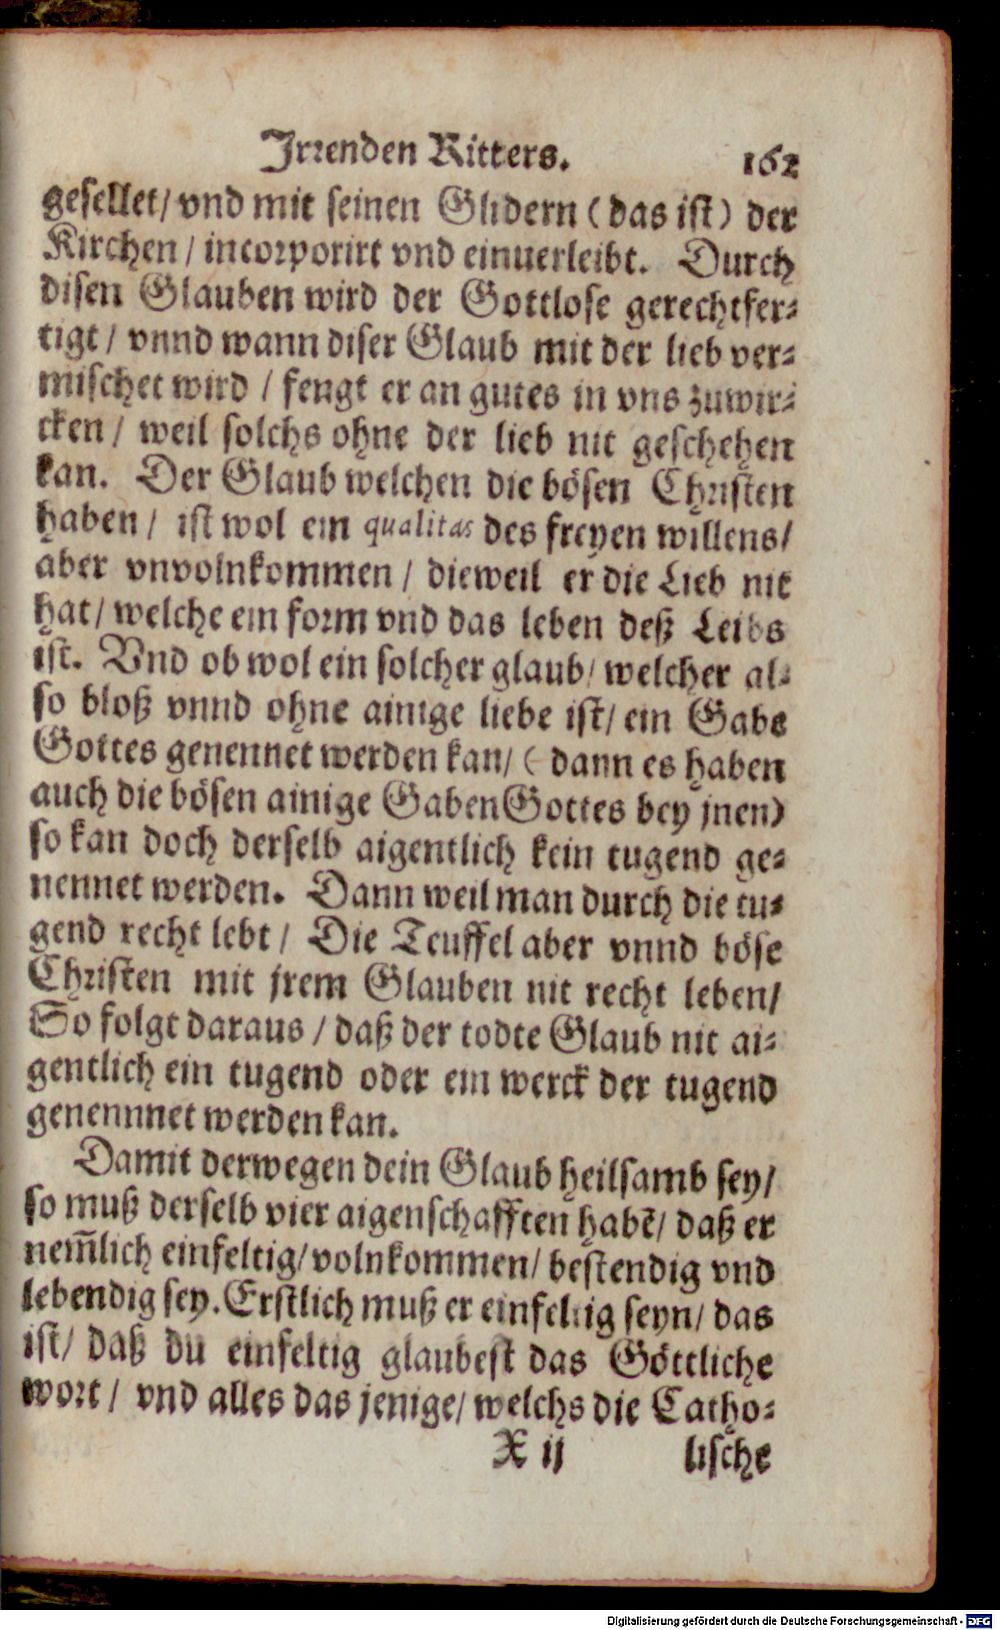 Irrenden Ritters. 162
gesellet/ vnd mit seinen Glidern (das ist) der
Kirchen / incorporirt vnd einuerleibt. Durch
disen Glauben wird der Gottlose gerechtfer-
tigt / vnnd wann diser Glaub mit der lieb ver-
mischet wird / fengt er an gutes in vns zuwir-
cken / weil solchs ohne der lieb nit geschehen
kan. Der Glaub welchen die bösen Christen
haben / ist wol ein qualitas des freyen willens/
aber vnvolnkommen / dieweil er die Lieb nit
hat/ welche ein form vnd das leben deß Leibs
ist. Vnd ob wol ein solcher glaub/ welcher al-
so bloß vnnd ohne ainige liebe ist/ ein Gabe
Gottes genennet werden kan/ ( dann es haben
auch die bösen ainige Gaben Gottes bey jnen)
so kan doch derselb aigentlich kein tugend ge-
nennet werden. Dann weil man durch die tu-
gend recht lebt / Die Teuffel aber vnnd böse
Christen mit jrem Glauben nit recht leben/
So folgt daraus / daß der todte Glaub nit ai-
gentlich ein tugend oder ein werck der tugend
genennnet werden kan.
Damit derwegen dein Glaub heilsamb sey/
so muß derselb vier aigenschafften habē/ daß er
nem̄lich einfeltig/ volnkommen/ bestendig vnd
lebendig sey. Erstlich muß er einfeltig seyn/ das
ist/ daß du einfeltig glaubest das Göttliche
wort / vnd alles das jenige/ welchs die Catho-
X ij lische
Digitalisierung gefördert durch die Deutsche Forschungsgemeinschaft - DFG